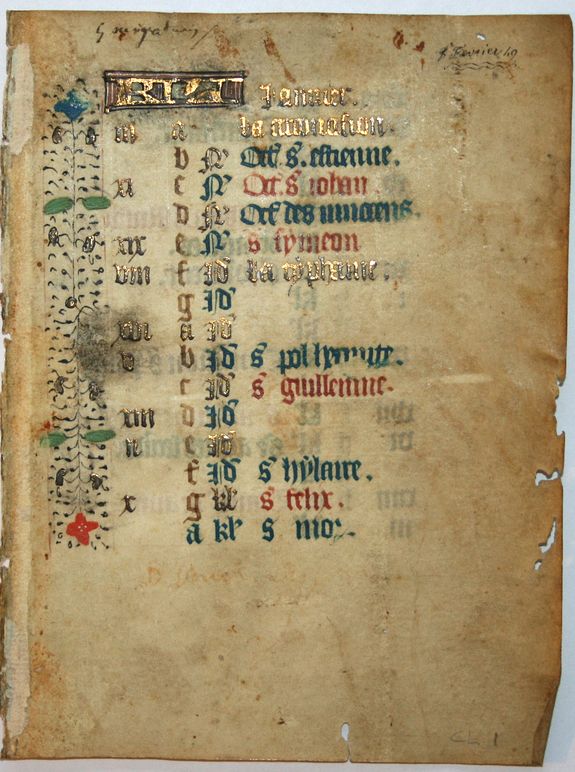 Kl Januier.
iii a La
b Nͦ Oct͛ s. estienne.
xi c Nͦ Oct͛ s iohan.
d Nͦ Oct͛ des innocens.
xix e Nͦ s symeon
viii f Id͛ La typhanie.
g Id͛
xvi a Id͛
v b Id͛ s pol hermite.
c Id͛ s guillerme.
xiii d Id͛
ii e Id͛
f Id͛ s hylaire.
x g kl͛ s felix.
a kl͛ s mor.
CL 1